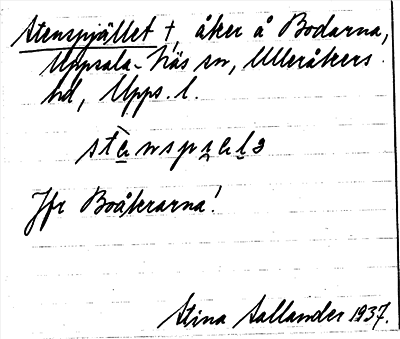 Stenspjället †, åker å Bodarna,
Uppsala-Näs sn, Ulleråkers
hd, Upps. l.
Jfr Boåkrarna!
Stina Sallander 1937.